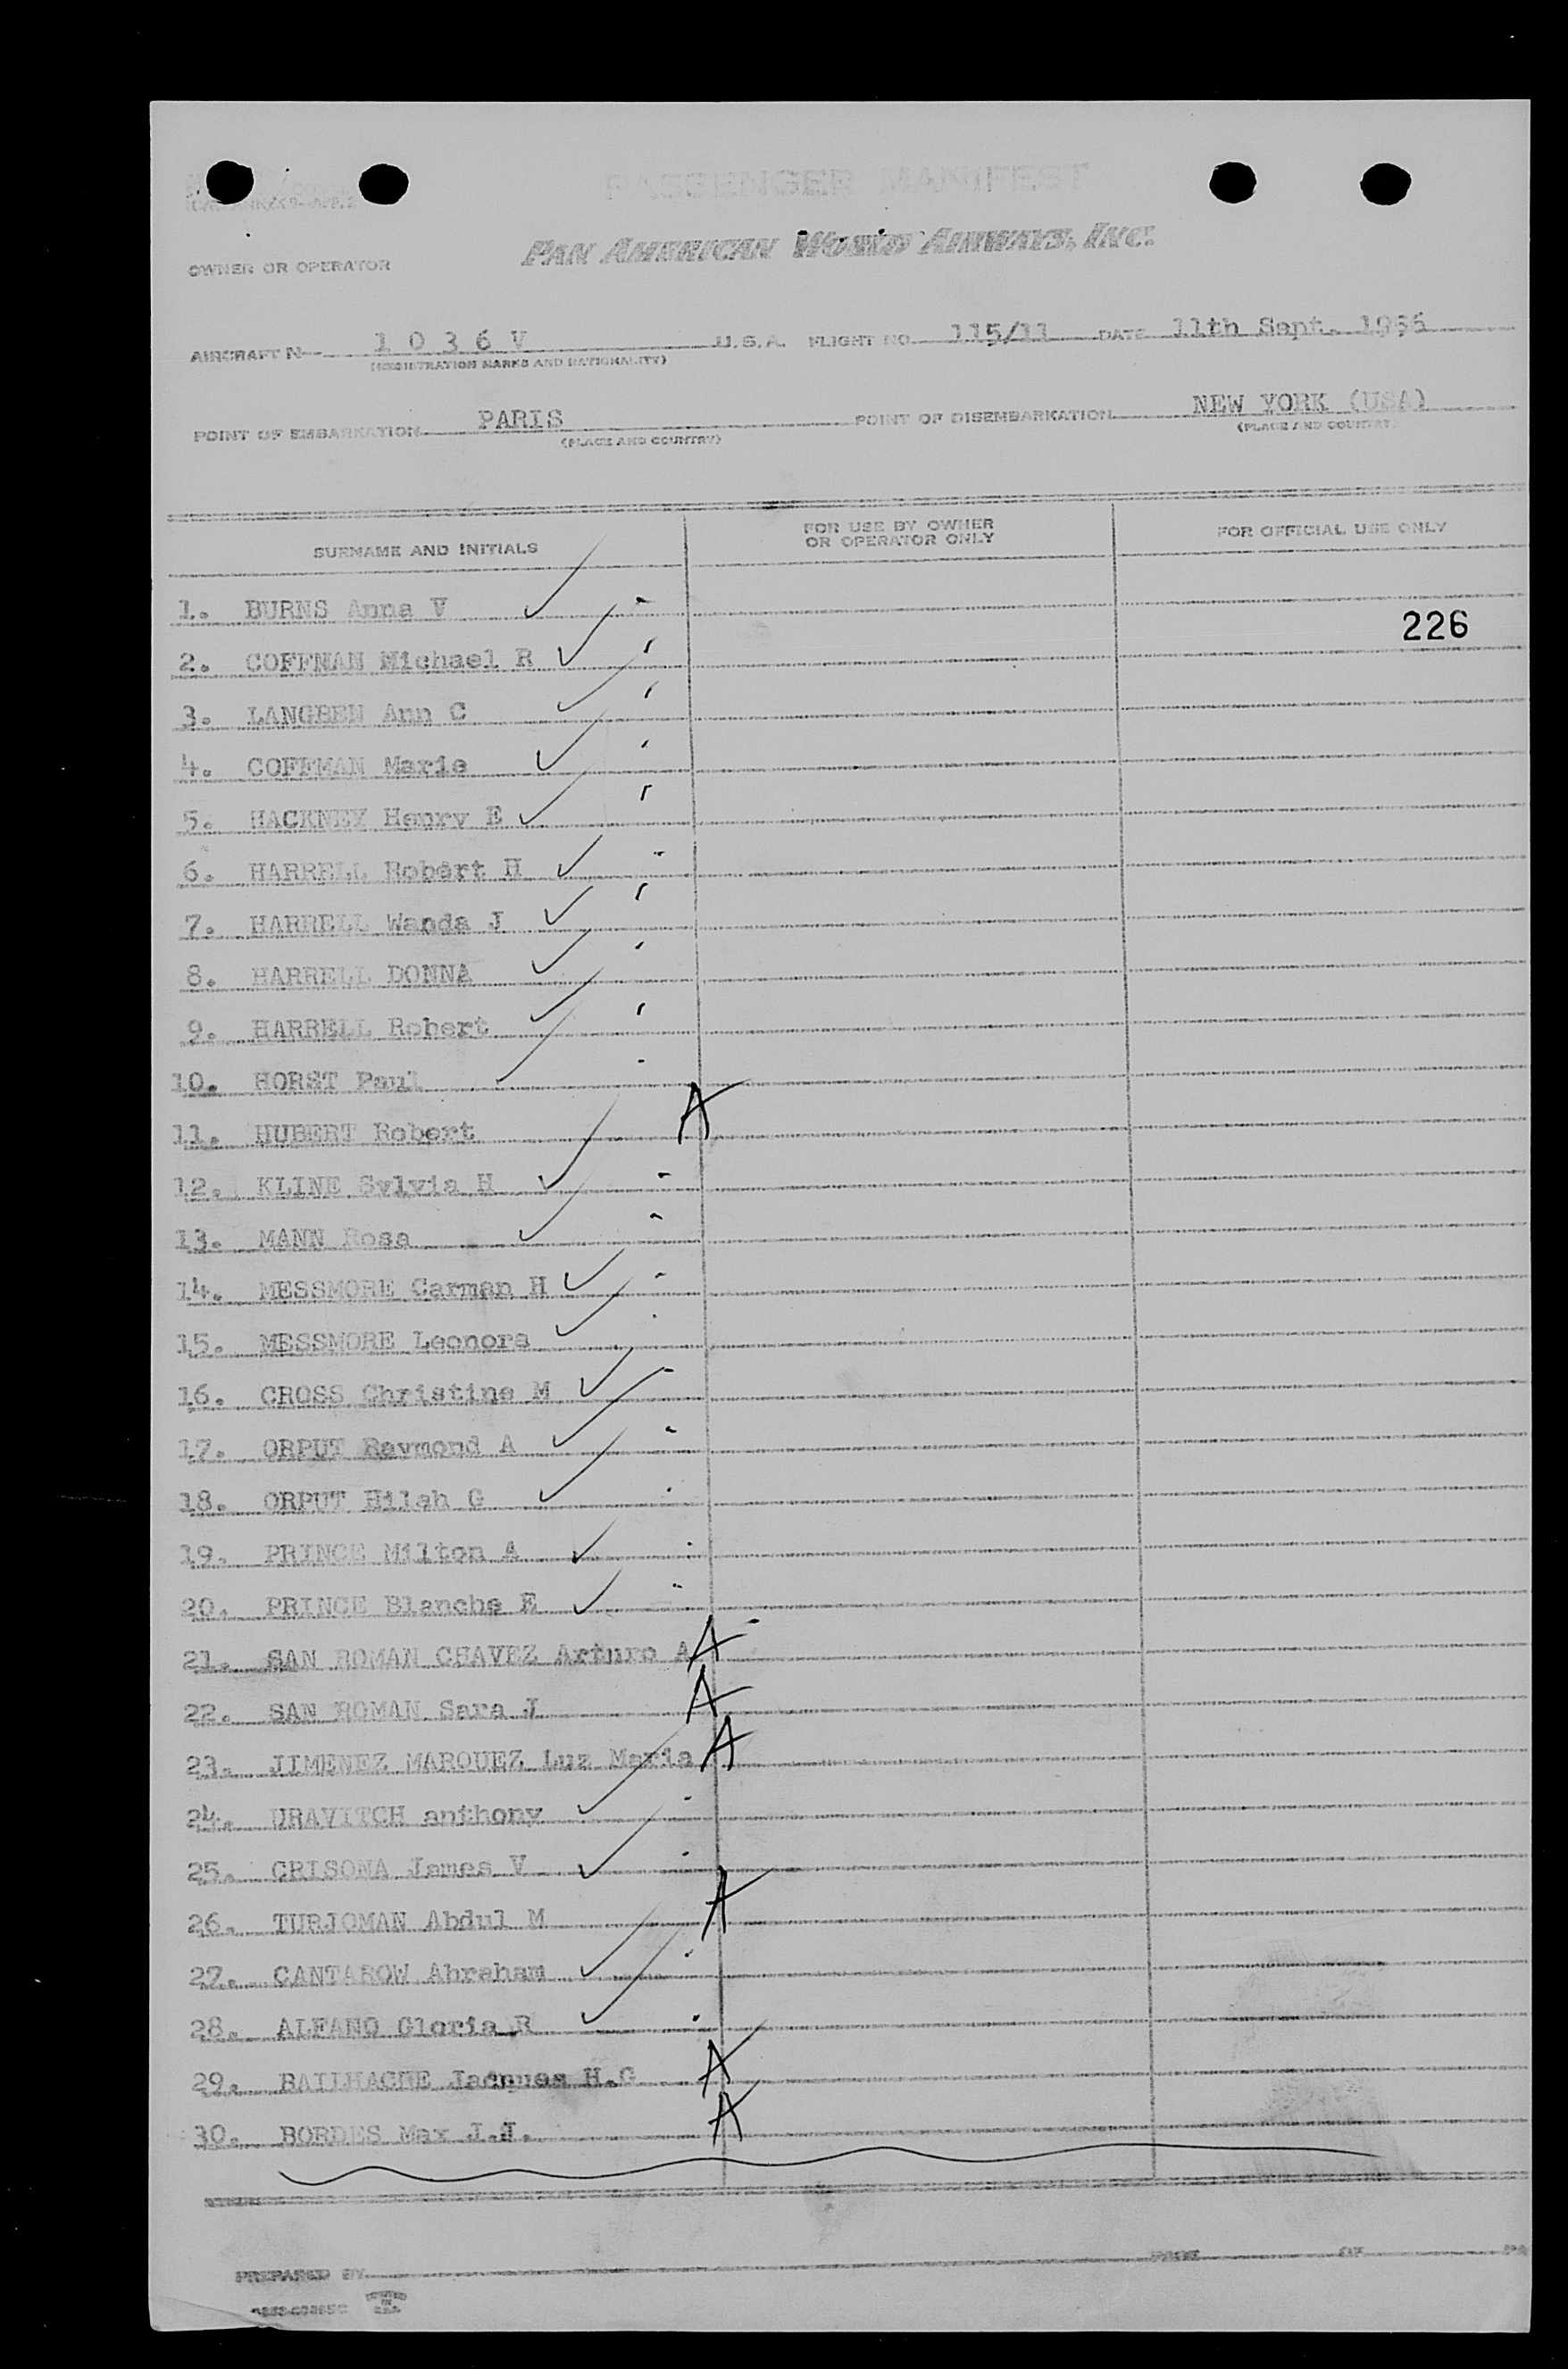 PASSENGER MANIFEST
OWNER OR OPERATOR PAN AMERICAN WORLD AIRWAYS, INC.
AIRCRAFT N 1 0 3 6 V U.S.A. FLIGHT NO. 115/11 DATE 11th Sept. 1956
(REGISTRATION MARKS AND NATIONALITY)
POINT OF EMBARKATION PARIS POINT OF DISEMBARKATION NEW YORK (USA)
(PLACE AND COUNTRY) (PLACE AND COUNTRY)
SURNAME AND INITIALS FOR USE BY OWNER OR OPERATOR ONLY FOR OFFICIAL USE ONLY
1. BURNS Anna V
226
2. COFFMAN Michael R
3. LANGBEN Ann C
4. COFFMAN Marie
5. HACKNEY Henry E
6. HARRELL Robert H
7. HARRELL Wanda J
8. HARRELL DONNA
9. HARRELL Robert
10. HORST Paul
11. HUBERT Robert A
12. KLINE Sylvia H
13. MANN Rosa
14. MESSMORE Carman H
15. MESSMORE Leonora
16. CROSS Christine M
17. ORPUT Raymond A
18. ORPUT Hilah G
19. PRINCE Milton A
20. PRINCE Blanche E
21. SAN ROMAN CHAVEZ Arturo A A
22. SAN ROMAN Sara J A
23. JIMENEZ MARQUEZ Luz Maria A
24. URAVITCH anthony
25. CRISONA James V
26. TURJOMAN Abdul M A
27. CANTAROW Abraham
28. ALFANO Gloria R
29. BAILHACHE Jacques H.G A
30. BORDES Max J.J. A
PREPARED BY PAGE OF
PRINTED IN U.S.A.